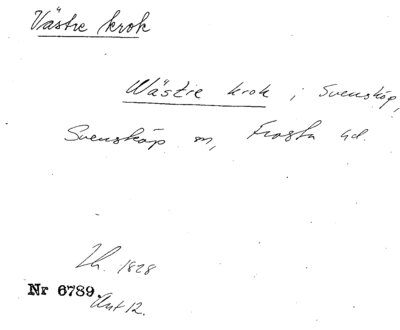 Västre krok
Wästre krok i Svensköp,
Svensköp sn, Frosta hd.
Lh. 1828
Nr 6789.
Akt 12.